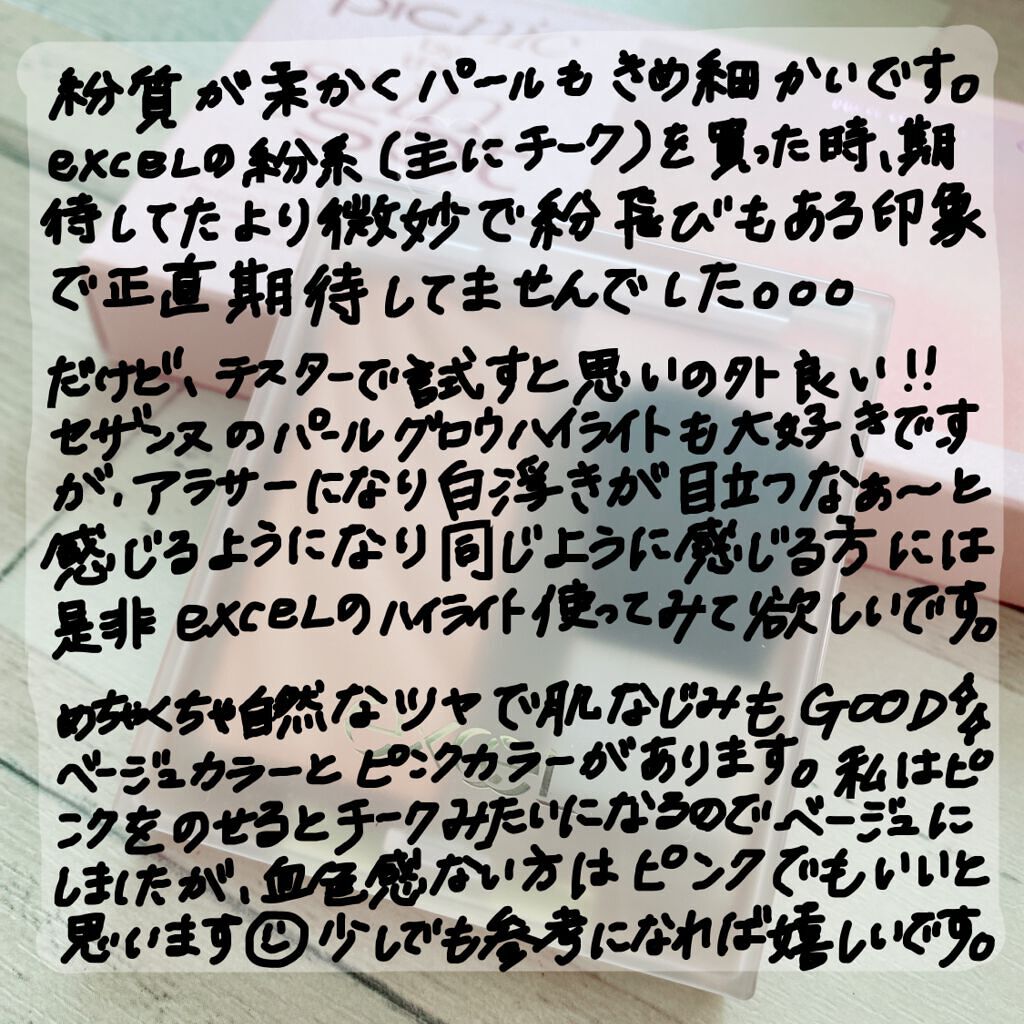 picnic
粉質が柔かくパールもきめ細かいです。
excelの粉系(主にチーク)を買った時、期
待してたより微妙で粉飛びもある印象
で正直期待してませんでした。。。
だけど、テスターで試すと思いの外良い!!
セザンヌのパールグロウハイライトも大好きです
が、アラサーになり白浮きが目立つなぁ〜と
感じるようになり同じように感じる方には
是非excelのハイライト使ってみて欲しいです。
めちゃくちゃ自然なツヤで肌なじみもGOOD✨
ベージュカラーとピンクカラーがあります。私はピ
ンクをのせるとチークみたいになるのでベージュに
しましたが、血色感ない方はピンクでもいいと
思います☺少しでも参考になれば嬉しいです。
excel